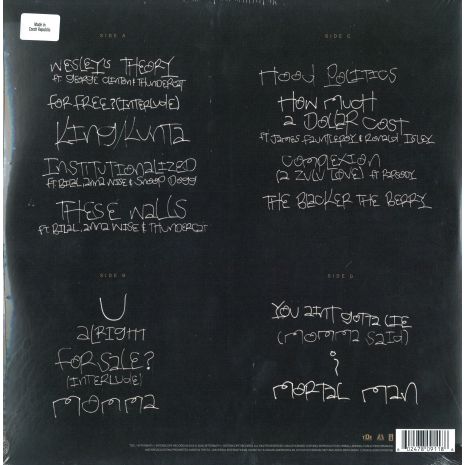 Made in
Czech Republic
SIDE A
WESLEY'S THEORY
ft. GEORGE CLINTON & THUNDERCAT
FOR FREE? (INTERLUDE)
King Kunta
INSTITUTIONALIZED
ft. BILAL, ANNA WISE & SNOOP DOGG
THESE WALLS
ft. BILAL, ANNA WISE & THUNDERCAT
SIDE B
U
alright
FOR SALE?
(INTERLUDE)
MOMMA
SIDE C
HOOD POLITICS
HOW MUCH
A DOLLAR COST
ft. JAMES FAUNTLEROY & RONALD ISLEY
COMPLEXION
(A ZULU LOVE) ft. RAPSODY
THE BLACKER THE BERRY
SIDE D
YOU AINT GOTTA LIE
(MOMMA SAID)
i
MORTAL MAN
6 02478 09118 6